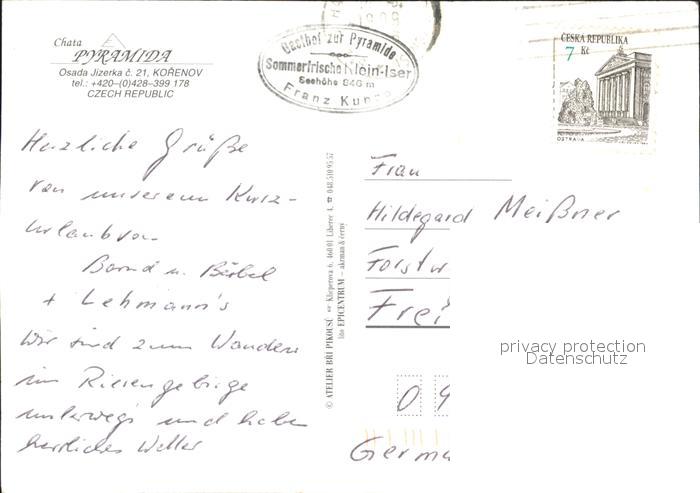 Chata
PYRAMIDA
Osada Jizerka č. 21, KOŘENOV
tel.: +420–(0)428–399 178
CZECH REPUBLIC
Gasthof zur Pyramide
Sommerfrische Klein-Iser
Seehöhe 846 m
Franz
ČESKÁ REPUBLIKA
7 Kč
OSTRAVA
Herzliche Grüße
von unserem Kurz-
urlaub von
Bernd u. Bärbel
+ Lehmann's
Wir sind zum Wandern
im Riesengebirge
unterwegs und haben
herrliches Wetter
© ATELIER BŘÍ PIKOUSŮ Klieperova 6, 460 01 Liberec 4, ☎ 048.510 95 57
lito EPICENTRUM – akrman & černý
Frau
Hildegard Meißner
Forstw
Frei
0 9
Germa
privacy protection
Datenschutz